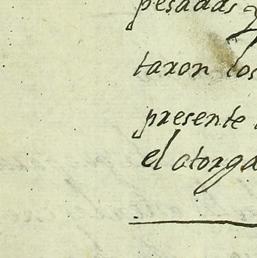 pesadas y
taron los
presente
el otorga